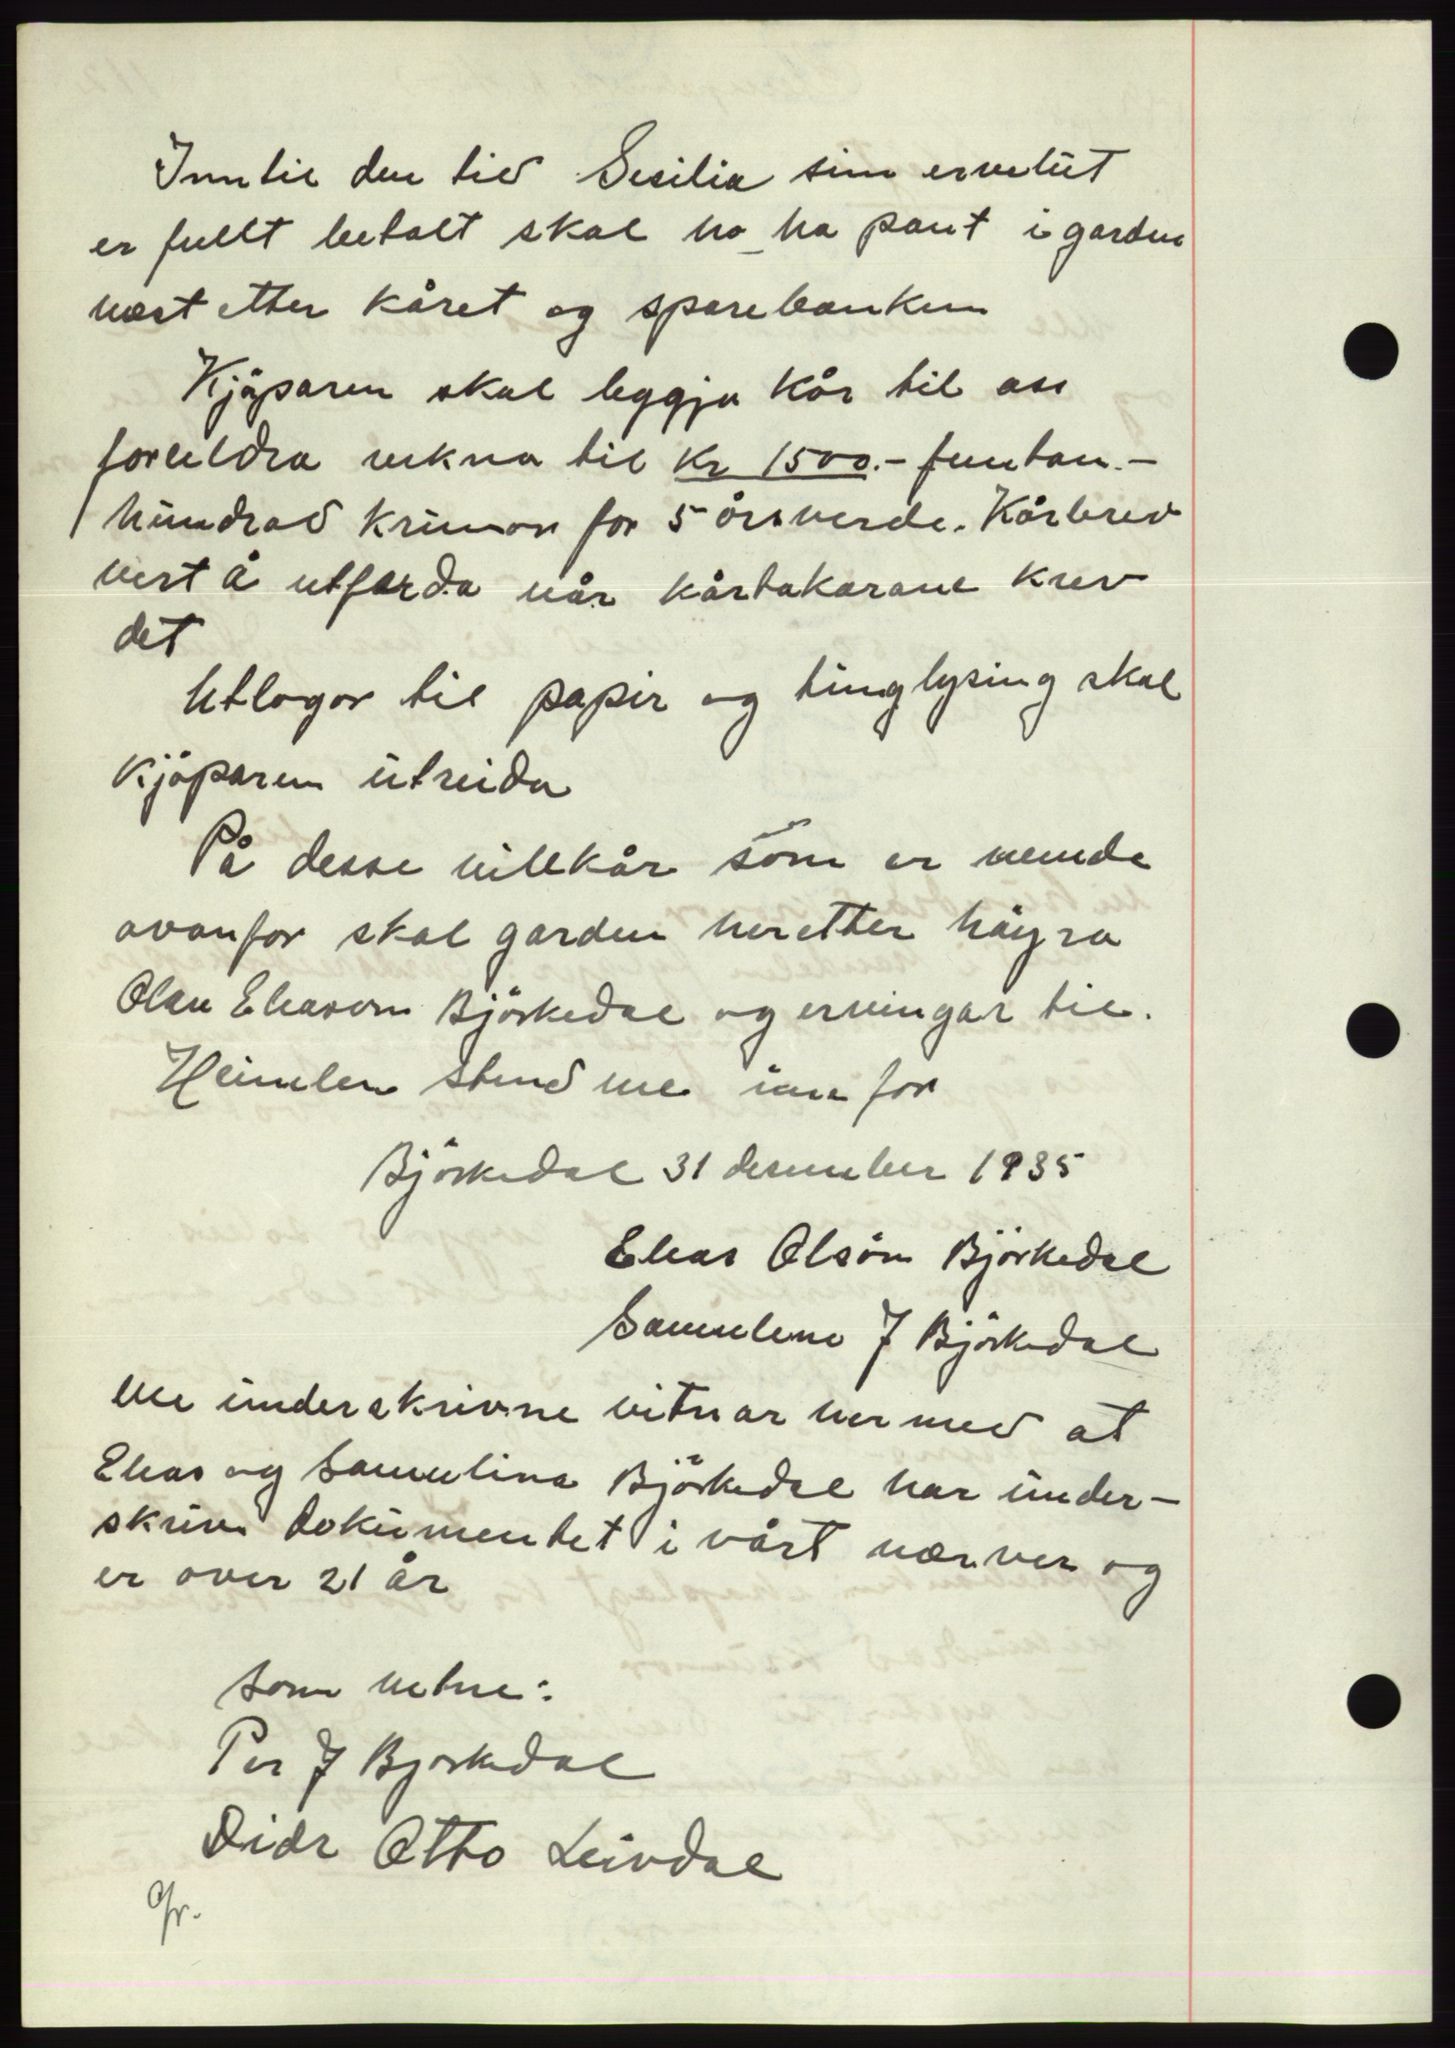 Inntil den tid Sesilia sin ervelut
er fullt betalt skal ho ha pant i garden
næst etter kåret og sparebanken
Kjöparen skal leggja kår til oss
foreldra rekna til Kr 1500.- femtan.-
hundrad krunor for 5 årsverde. Kårbrev
vert å utferda når kårtakarane krev
det
Utlogor til papir og tinglysing skal
kjöparen utreida
På desse vilkår som er nemde
ovanfor skal garden heretter höyra
Olav Eliason Björkedal og ervingar til.
Heimlen stend me inne for
Björkedal 31 desember 1935
Elias Olsön Björkedal
Samulene J Björkedal
Me underskrivne vitnar hermed at
Elias og Samulina Björkedal har under-
skrive dokumentet i vårt nærver og
er over 21 år
Som vitne:
Per J Bjorkedal
Didr Otto Leivdal
Gr.